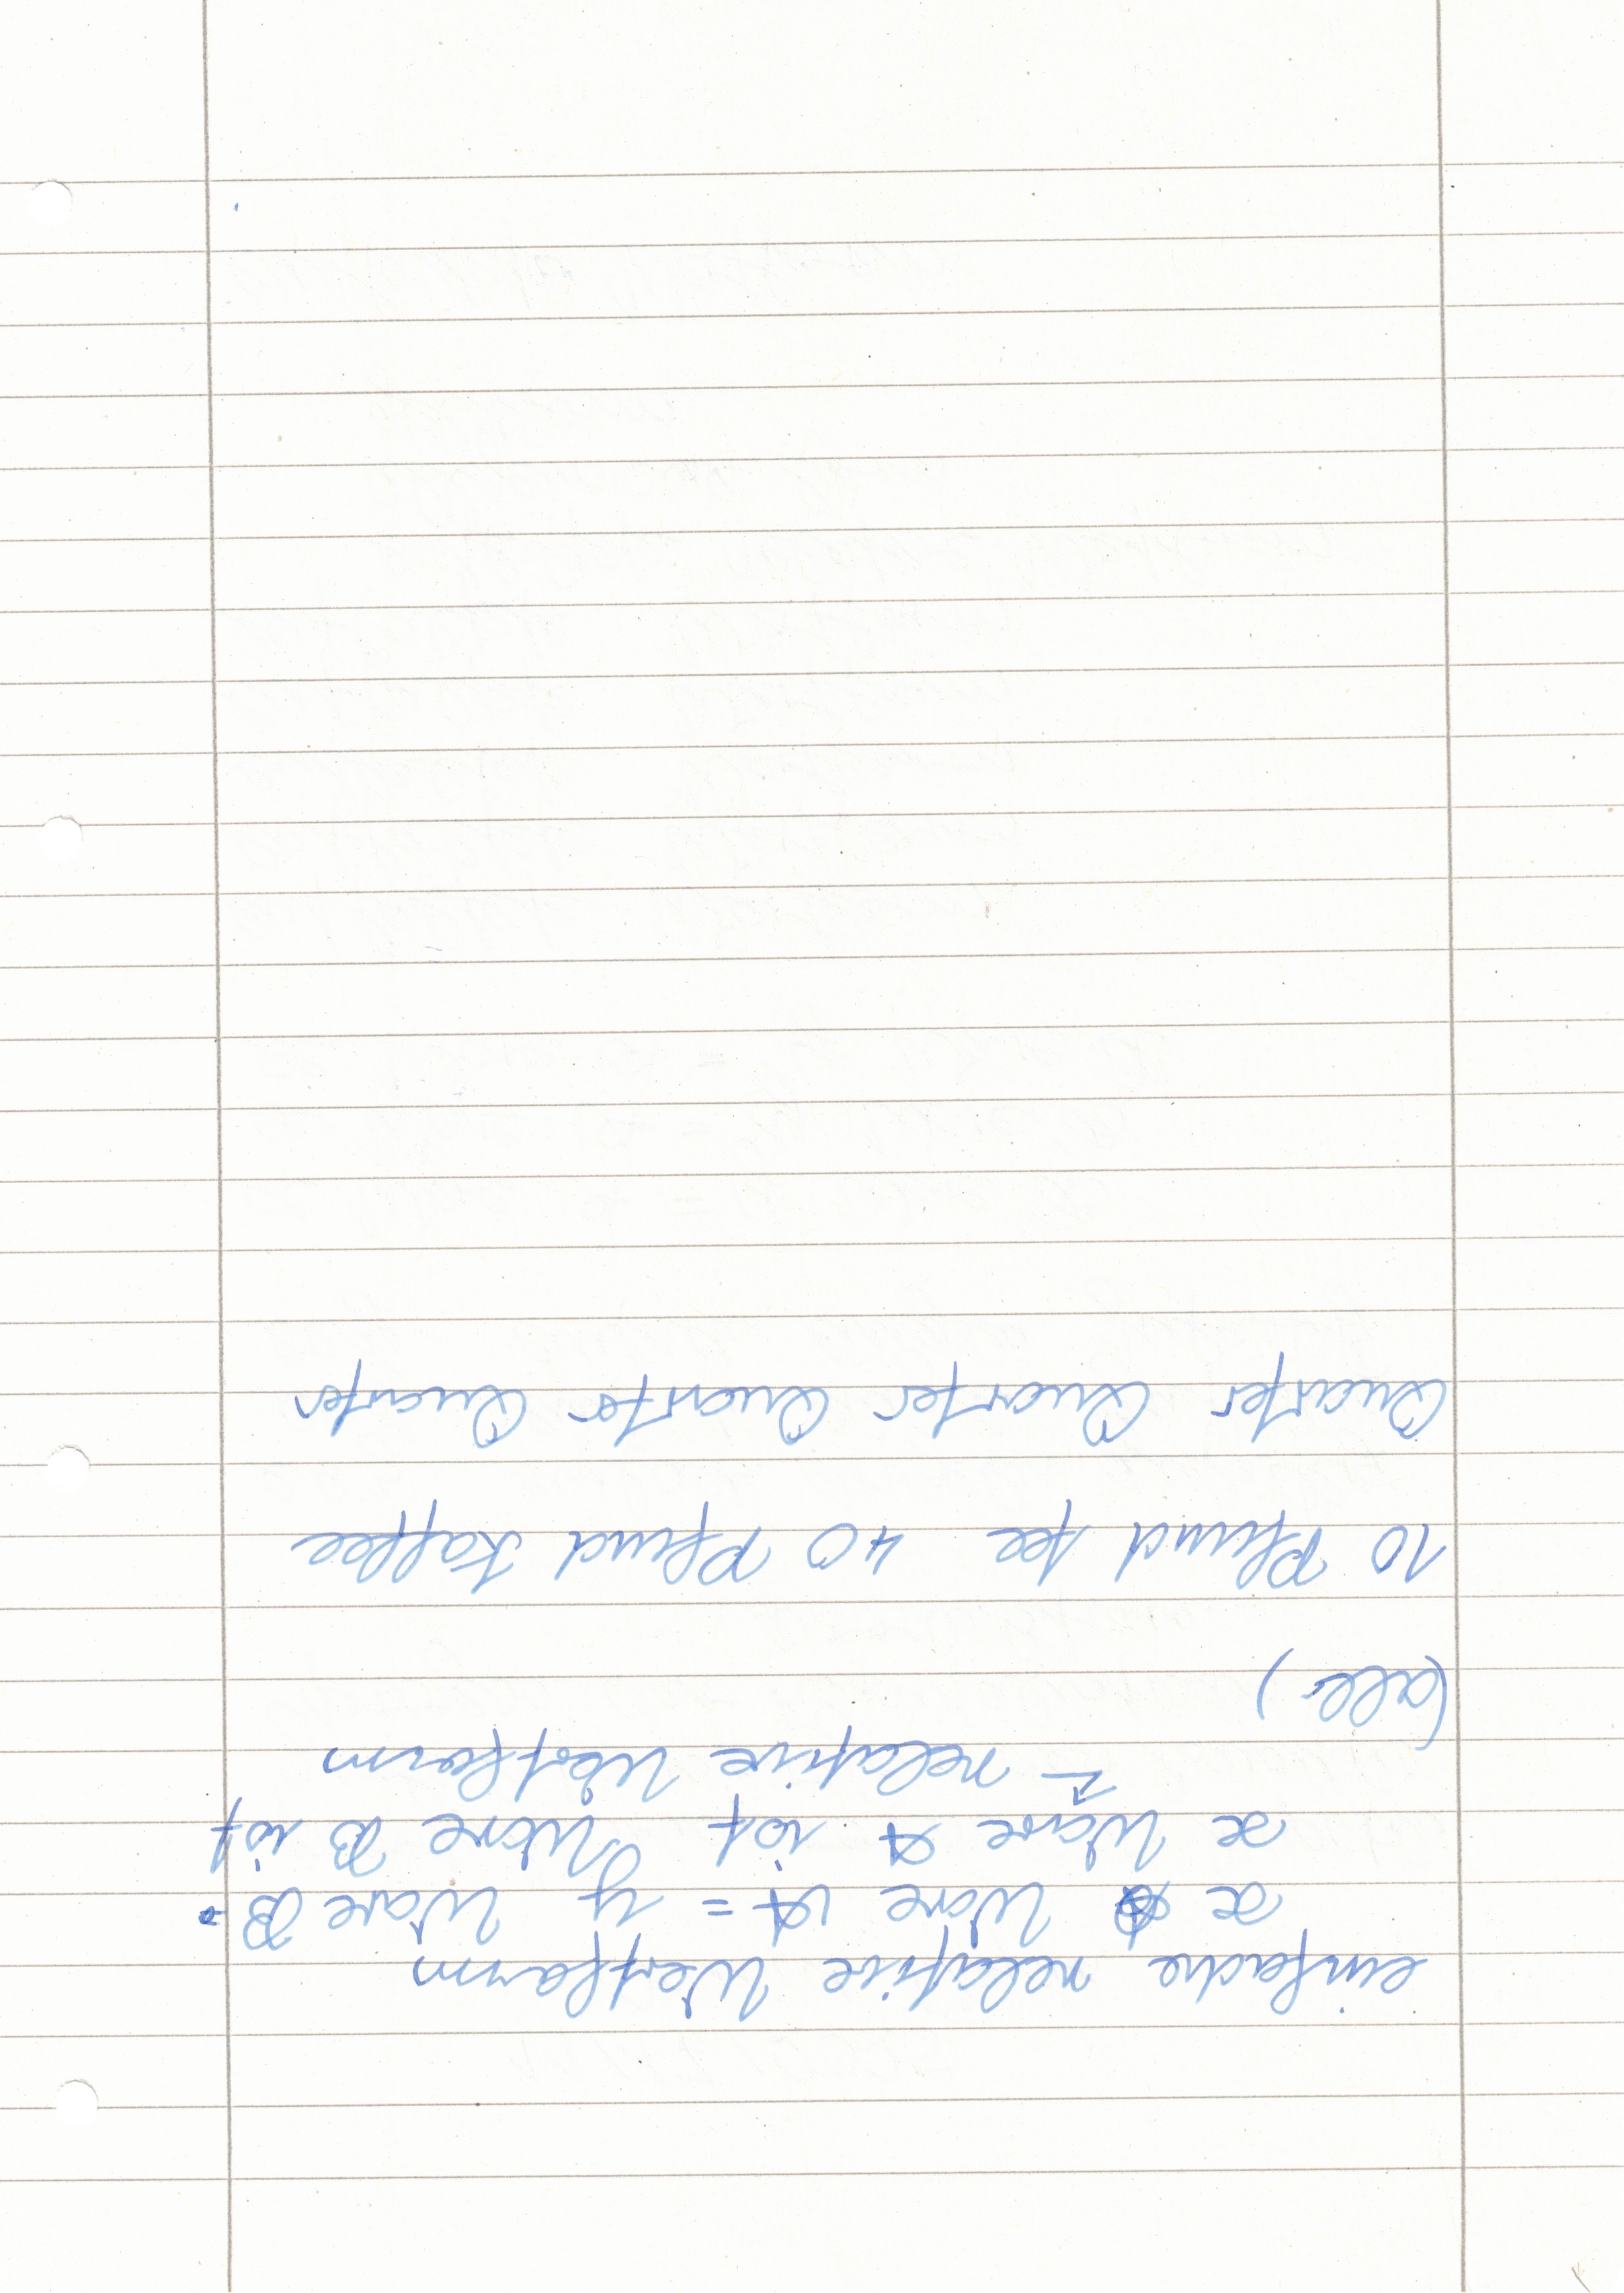 einfache relative Wertform
x Ware A = y Ware B.
x Ware A ist y Ware B ist
relative Wertform
(alle)
10 Pfund tee 40 Pfund Kaffee
Quarter Quarter Quarter Quarter